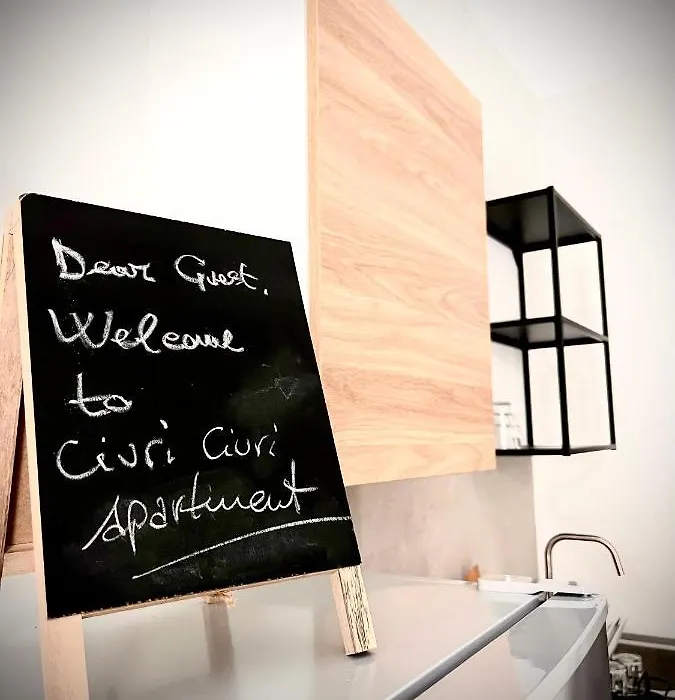 Dear Guest,
Welcome
to
Ciuri Ciuri
Apartment